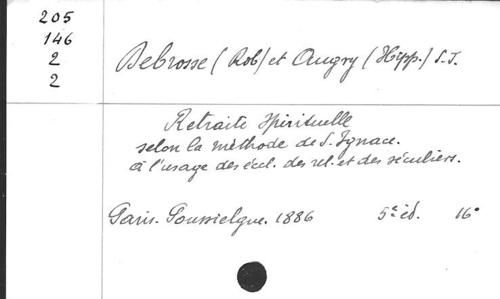 205
146
2
2
Debrosse (Rob) et Augry (Hipp.) S.J.
Retraite Spirituelle
selon la méthode de S. Ignace.
à l'usage des éccl. des rel. et des séculiers.
Paris. Poussielgue. 1886 5e éd. 16°